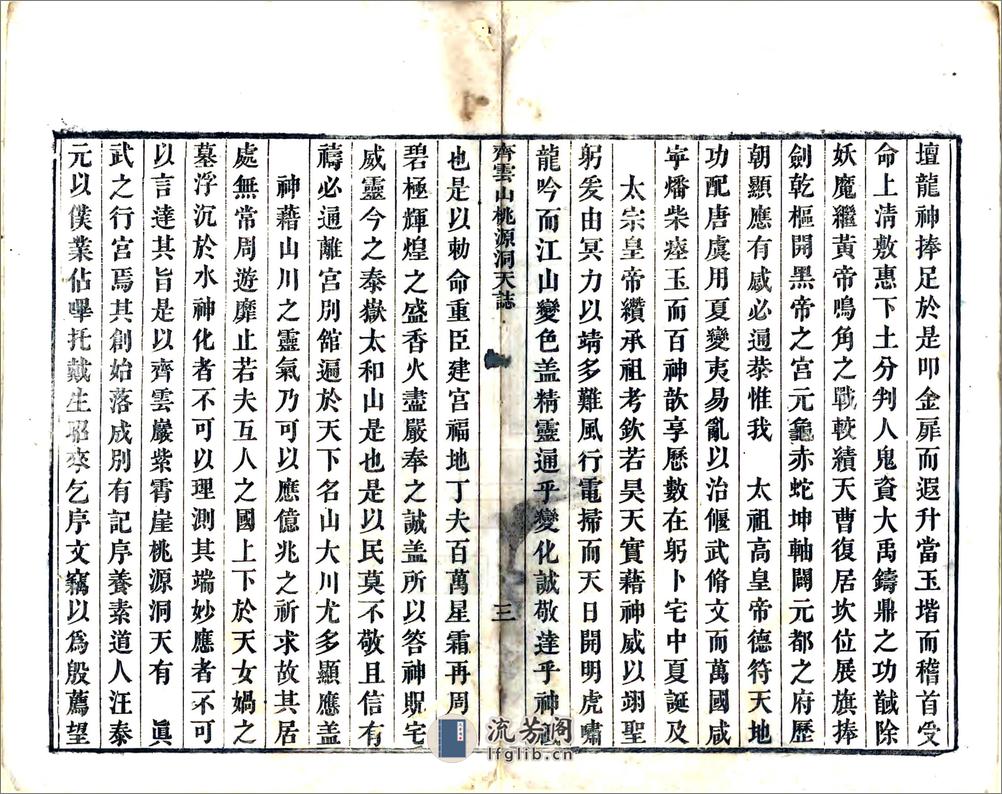 壇龍神捧足於是叩金扉而遐升當玉堦而稽首受
命上淸敷惠下土分判人鬼資大禹鑄鼎之功馘除
妖魔繼黃帝鳴角之戰較績天曹復居坎位展旗捧
劍乾樞開黑帝之宮元龜赤蛇坤軸闢元都之府歷
朝顯應有感必通恭惟我 太祖高皇帝德符天地
功配唐虞用夏變夷易亂以治偃武脩文而萬國咸
寧燔柴瘞玉而百神歆享歷數在躬卜宅中夏誕及
太宗皇帝纘承祖考欽若昊天實藉神威以翊聖
躬爰由冥力以靖多難風行電掃而天日開明虎嘯
龍吟而江山變色盖精靈通乎變化誠敬達乎神
齊雲山桃源洞天誌
三
也是以勅命重臣建宮福地丁夫百萬星霜再周
碧極輝煌之盛香火盡嚴奉之誠盖所以答神貺宅
威靈今之泰嶽太和山是也是以民莫不敬且信有
禱必通離宮別館遍於天下名山大川尤多顯應盖
神藉山川之靈氣乃可以應億兆之祈求故其居
處無常周遊靡止若夫互人之國上下於天女媧之
墓浮沉於水神化者不可以理測其端妙應者不可
以言達其旨是以齊雲巖紫霄崖桃源洞天有 眞
武之行宮焉其創始落成別有記序養素道人汪泰
元以僕業佔嗶托戴生昭來乞序文竊以爲殷薦望
流芳閣
lfglib.cn